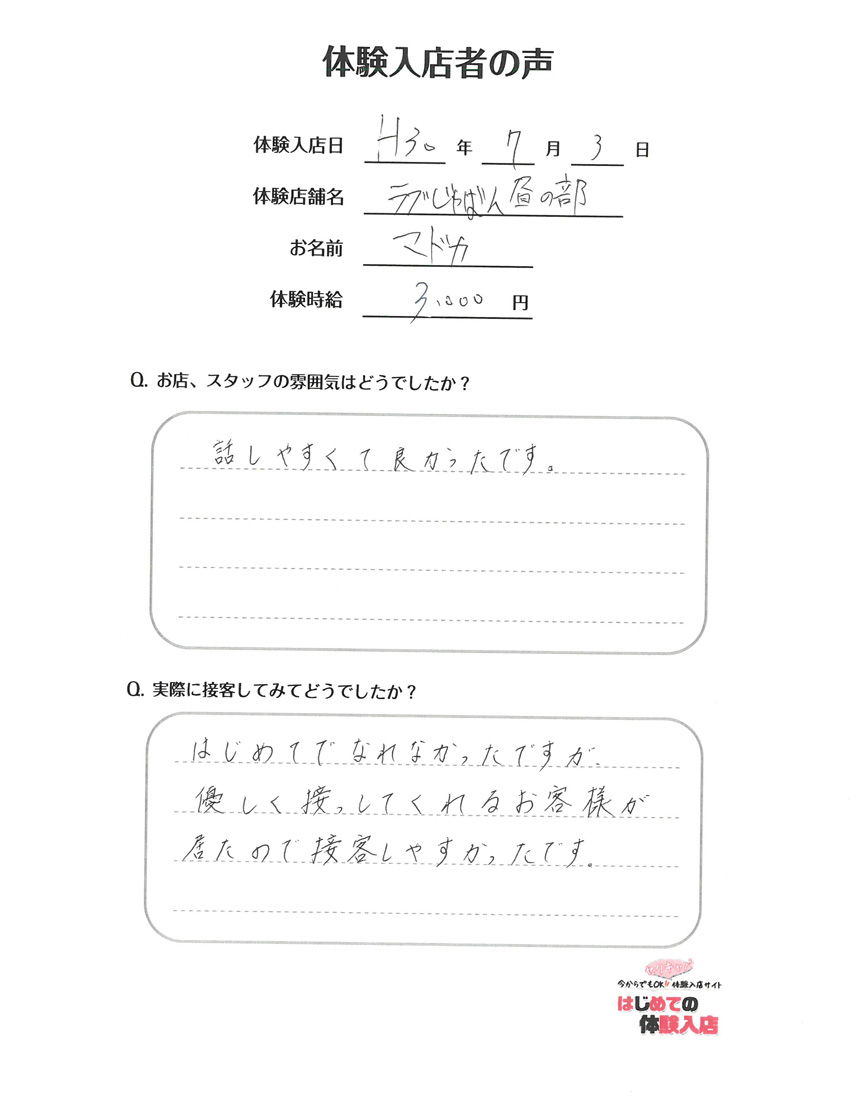 体験入店者の声
体験入店日 H30 年 7 月 3 日
体験店舗名 ラブじゃぱん 昼の部
お名前 マドカ
体験時給 3,000 円
Q. お店、スタッフの雰囲気はどうでしたか？
話しやすくて良かったです。
Q. 実際に接客してみてどうでしたか？
はじめてでなれなかったですが、
優しく接っしてくれるお客様が
居たので接客しやすかったです。
今からでもOK!! 体験入店サイト
はじめての
体験入店